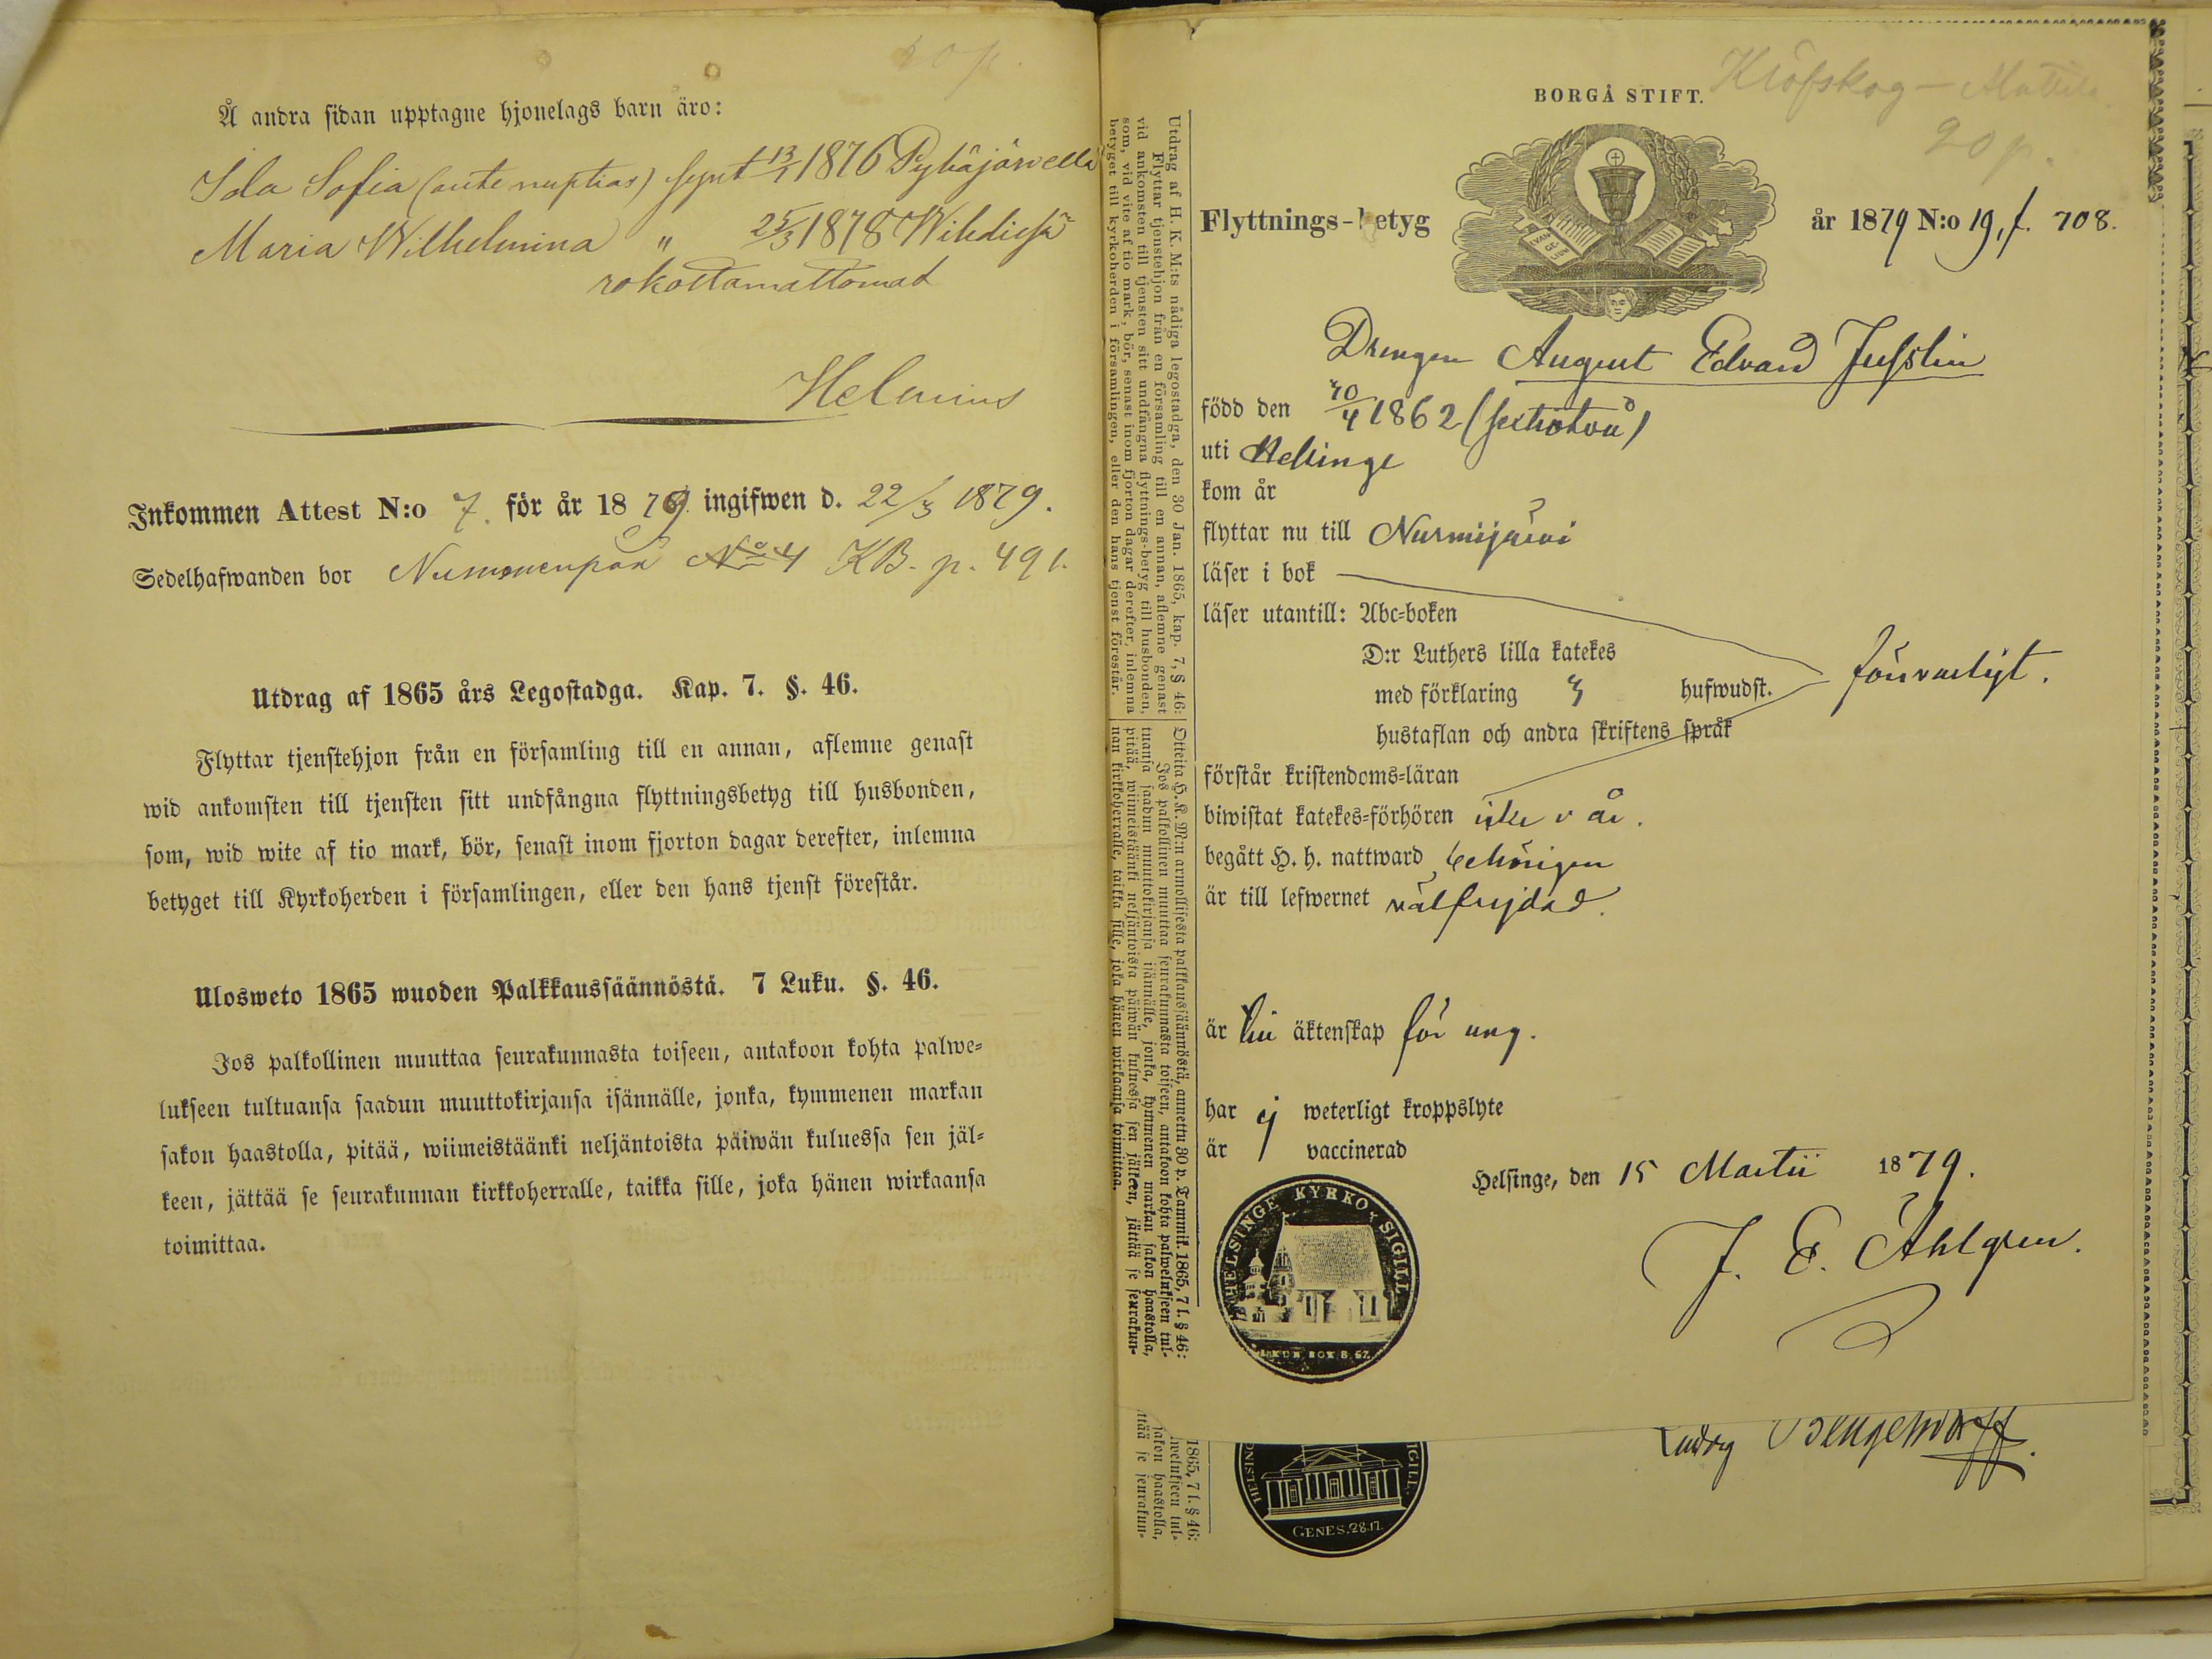 20 p.
Å andra sidan upptagne hjonelags barn äro:
Ida Sofia (ante nuptias) synt 13/1 1876 Pyhäjärvellä
Maria Wilhelmina " 25/3 1878 Wihdissä
rokottamattomat
Helenius
Inkommen Attest N:o 7. för år 1879 ingifwen d. 22/3 1879.
Sedelhafwanden bor Nummenpää No 4 KB. p. 491.
Utdrag af 1865 års Legostadga. Kap. 7. §. 46.
Flyttar tjenstehjon från en församling till en annan, aflemne genast
wid ankomsten till tjensten sitt undfångna flyttningsbetyg till husbonden,
som, wid wite af tio mark, bör, senast inom fjorton dagar derefter, inlemna
betyget till Kyrkoherden i församlingen, eller den hans tjenst förestår.
Ulosweto 1865 wuoden Palkkaussäännöstä. 7 Luku. §. 46.
Jos palkollinen muuttaa seurakunnasta toiseen, antakoon kohta palwe=
lukseen tultuansa saadun muuttokirjansa isännälle, jonka, kymmenen markan
sakon haastolla, pitää, wiimeistäänki neljäntoista päiwän kuluessa sen jäl=
keen, jättää se seurakunnan kirkkoherralle, taikka sille, joka hänen wirkaansa
toimittaa.
Utdrag af H. K. M:ts nådiga legostadga, den 30 Jan. 1865, kap. 7, § 46:
Flyttar tjenstehjon från en församling till en annan, aflemne genast
vid ankomsten till tjensten sitt undfångna flyttnings-betyg till husbonden,
som, vid vite af tio mark, bör, senast inom fjorton dagar derefter, inlemna
betyget till kyrkoherden i församlingen, eller den hans tjenst förestår.
Otteita H. K. M:n armollisesta palkkaussäännöstä, annettu 30 p. Tammik. 1865, 7 l. § 46:
Jos palkollinen muuttaa seurakunnasta toiseen, antakoon kohta palwelukseen tul-
tuansa saadun muuttokirjansa isännälle, jonka, kymmenen markan sakon haastolla,
pitää, wiimeistäänki neljäntoista päiwän kuluessa sen jälkeen, jättää se seurakun-
nan kirkkoherralle, taikka sille, joka hänen wirkaansa toimittaa.
BORGÅ STIFT.
20 p.
Flyttnings-betyg år 1879 N:o 19, f. 708.
Drengen August Edvard Jusslin
född den 40/4 1862 (sextiotvå)
uti Helsinge
kom år
flyttar nu till Nurmijärvi
läser i bok
läser utantill: Abc=boken
D:r Luthers lilla katekes
med förklaring hufwudst. försvarligt.
hustaflan och andra skriftens språk
förstår kristendoms=läran
biwistat katekes=förhören år.
begått H. h. nattward behörigen
är till lefwernet välfrejdad.
är till äktenskap för ung.
har ej weterligt kroppslyte
är vaccinerad
Helsinge, den 15 Martii 1879.
J. E. Åhlgren.
HELSINGE KYRKO SIGILL
1865, 7 l. § 46:
welukseen tul-
sakon haastolla,
ttää se seurakun-
HELSING
IGILL.
GENES. 28.17.
Bengelsdorff